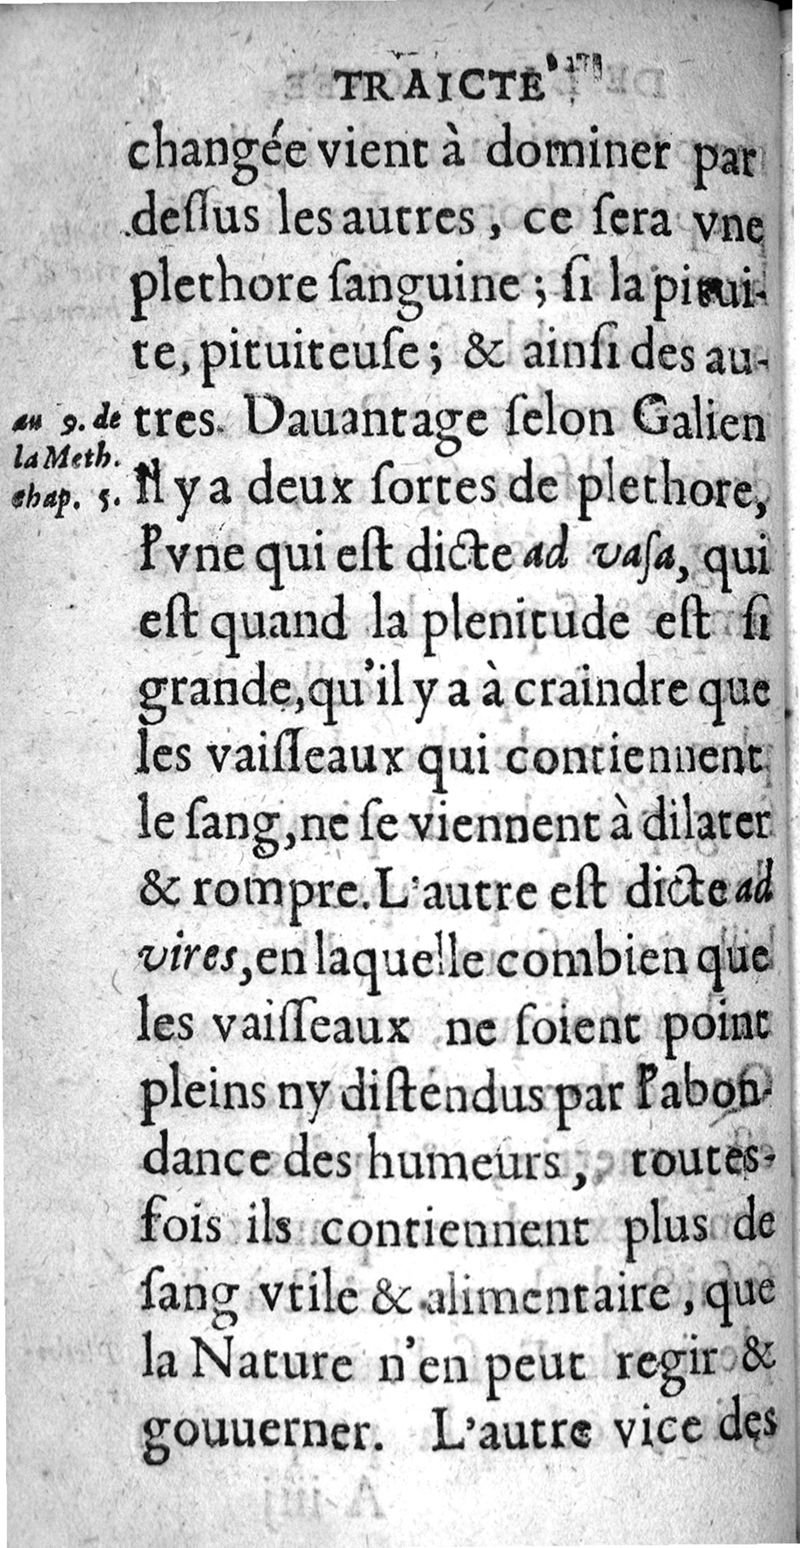 TRAICTE
changée vient à dominer par
deſſus les autres, ce ſera vne
plethore ſanguine; ſi la pitui-
te, pituiteuſe; & ainſi des au-
au 9. de
la Meth.
chap. 5.
tres. Dauantage ſelon Galien
Il y a deux ſortes de plethore,
l'vne qui eſt dicte ad vaſa, qui
eſt quand la plenitude eſt ſi
grande, qu'il y a à craindre que
les vaiſſeaux qui contiennent
le ſang, ne ſe viennent à dilater
& rompre. L'autre eſt dicte ad
vires, en laquelle combien que
les vaiſſeaux ne ſoient point
pleins ny diſtendus par l'abon-
dance des humeurs, toutes-
fois ils contiennent plus de
ſang vtile & alimentaire, que
la Nature n'en peut regir &
gouuerner. L'autre vice des